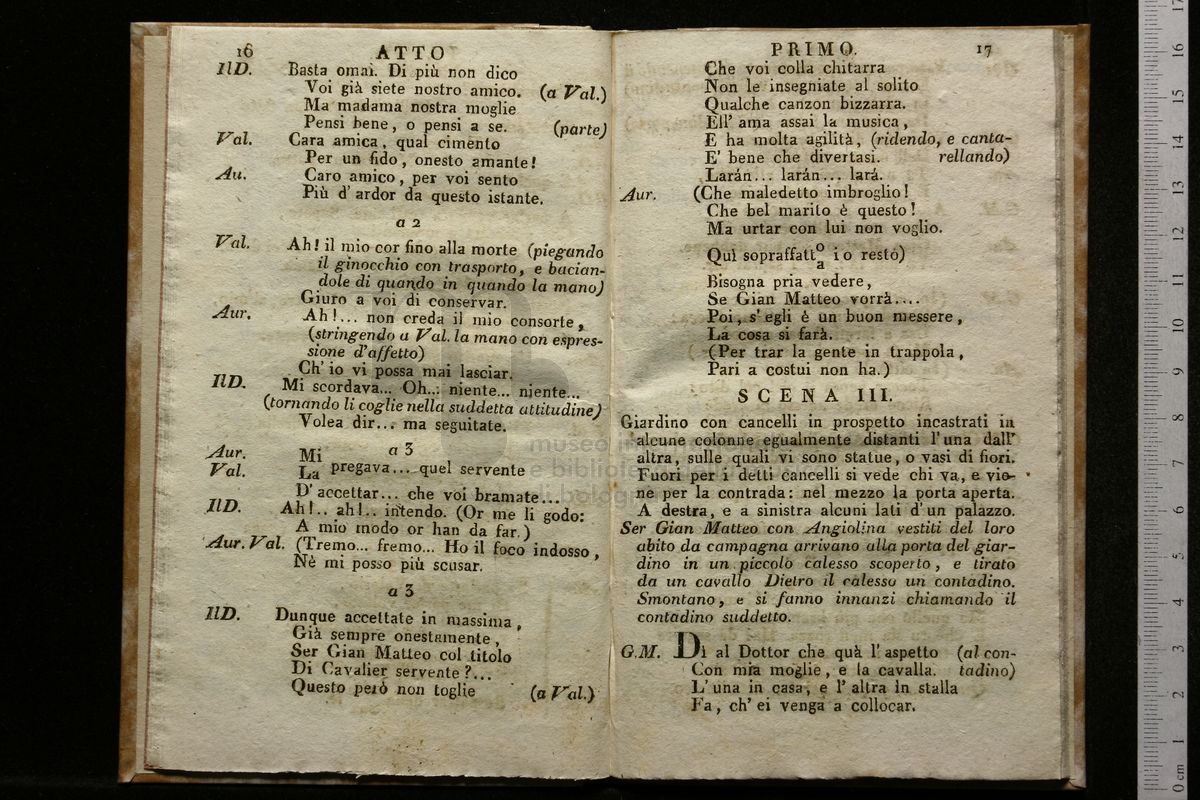 16 ATTO
IlD. Basta omai. Di più non dico
Voi già siete nostro amico. (a Val.)
Ma madama nostra moglie
Pensi bene, o pensi a se. (parte)
Val. Cara amica, qual cimento
Per un fido, onesto amante!
Au. Caro amico, per voi sento
Più d'ardor da questo istante.
a 2
Val. Ah! il mio cor fino alla morte (piegando
il ginocchio con trasporto, e bacian-
dole di quando in quando la mano)
Giuro a voi di conservar.
Aur. Ah!... non creda il mio consorte,
(stringendo a Val. la mano con espres-
sione d'affetto)
Ch'io vi possa mai lasciar.
IlD. Mi scordava... Oh... niente... niente...
(tornando li coglie nella suddetta attitudine)
Volea dir... ma seguitate.
a 3
Aur. Mi
Val. La pregava... quel servente
D'accettar... che voi bramate...
IlD. Ah!.. ah!.. intendo. (Or me li godo:
A mio modo or han da far.)
Aur. Val. (Tremo... fremo... Ho il foco indosso,
Nè mi posso più scusar.
a 3
IlD. Dunque accettate in massima,
Già sempre onestamente,
Ser Gian Matteo col titolo
Di Cavalier servente?...
Questo però non toglie (a Val.)
PRIMO. 17
Che voi colla chitarra
Non le insegniate al solito
Qualche canzon bizzarra.
Ell' ama assai la musica,
E ha molta agilità, (ridendo, e canta-
E' bene che divertasi. rellando)
Larán... larán... lará.
Aur. (Che maledetto imbroglio!
Che bel marito è questo!
Ma urtar con lui non voglio.
Quì sopraffatt o/a io resto)
Bisogna pria vedere,
Se Gian Matteo vorrà....
Poi, s'egli è un buon messere,
La cosa si farà.
(Per trar la gente in trappola,
Pari a costui non ha.)
SCENA III.
Giardino con cancelli in prospetto incastrati in
alcune colonne egualmente distanti l'una dall'
altra, sulle quali vi sono statue, o vasi di fiori.
Fuori per i detti cancelli si vede chi va, e vie-
ne per la contrada: nel mezzo la porta aperta.
A destra, e a sinistra alcuni lati d'un palazzo.
Ser Gian Matteo con Angiolina vestiti del loro
abito da campagna arrivano alla porta del giar-
dino in un piccolo calesso scoperto, e tirato
da un cavallo Dietro il calesso un contadino.
Smontano, e si fanno innanzi chiamando il
contadino suddetto.
G.M. Dì al Dottor che quà l'aspetto (al con-
Con mia moglie, e la cavalla. tadino)
L'una in casa, e l'altra in stalla
Fa, ch'ei venga a collocar.